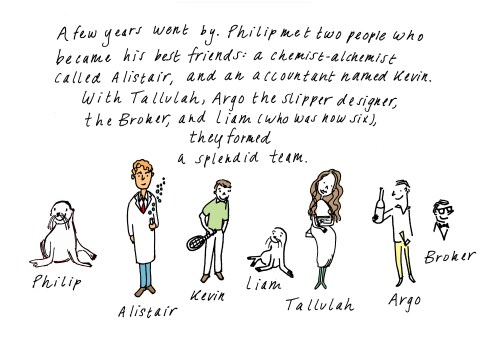 A few years went by. Philip met two people who
became his best friends: a chemist-alchemist
called Alistair, and an accountant named Kevin.
With Tallulah, Argo the slipper designer,
the Broker, and Liam (who was now six),
they formed
a splendid team.
Philip
Alistair
Kevin
Liam
Tallulah
Argo
Broker